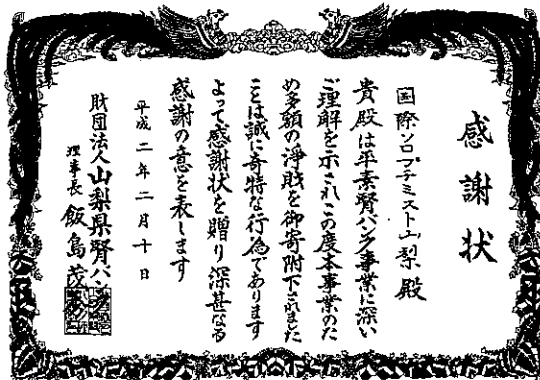 感謝状
国際ソロプチミスト山梨殿
貴殿は平素腎バンク事業に深い
ご理解を示されこの度本事業のた
め多額の浄財を御寄附下されました
ことは誠に奇特な行為であります
よって感謝状を贈り深甚なる
感謝の意を表します
平成二年二月十日
財団法人山梨県腎バンク
理事長 飯島茂